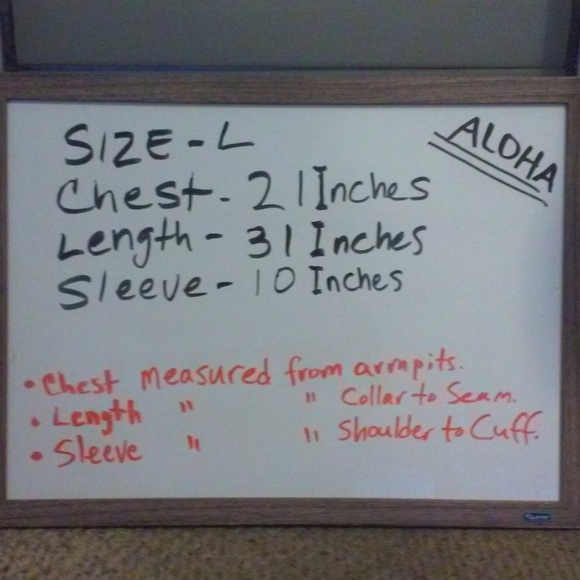 SIZE - L
ALOHA
Chest - 21 Inches
Length - 31 Inches
Sleeve - 10 Inches
• Chest measured from armpits.
• Length " " Collar to Seam.
• Sleeve " " Shoulder to Cuff.